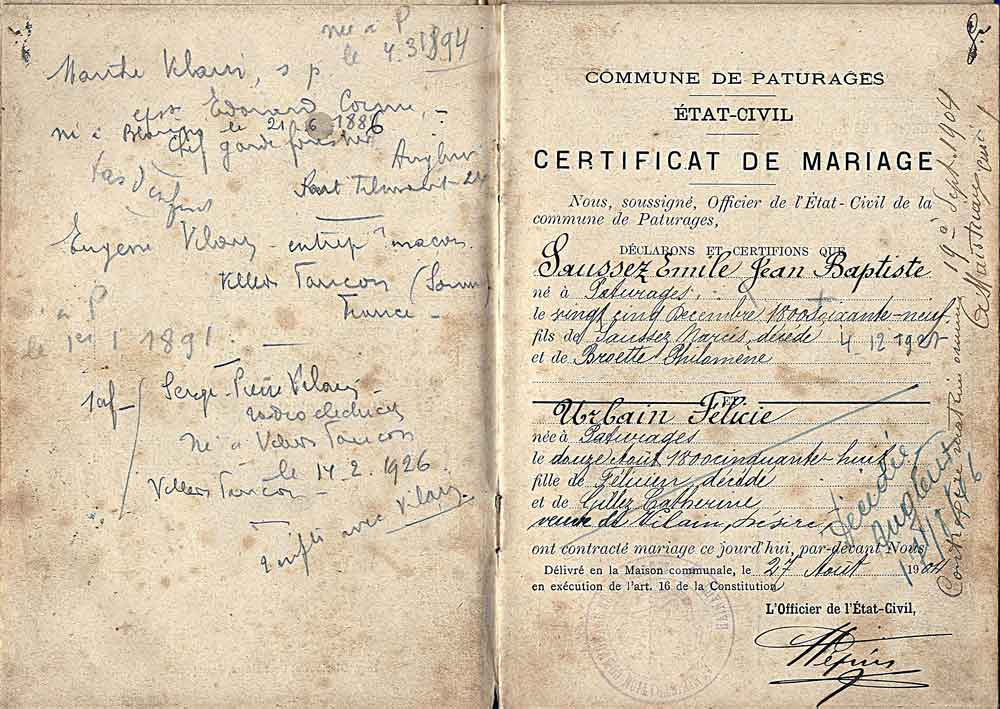 née à P
le 4.3.1894
Marthe Vilain, s p.
Edouard
né à le 21 6 1886
chef garde forestier
Pas d'enfants
Eugène Vilain - entrep maçon.
Villers Faucon (Somme)
France -
à P
le 1er 1 1891.
1 af - Serge-Pierre Vilain
radio electricien
Né à Villers Faucon
le 14.2.1926
Villers Faucon -
avec Vilain
COMMUNE DE PATURAGES
ÉTAT-CIVIL
CERTIFICAT DE MARIAGE
Nous, soussigné, Officier de l'État-Civil de la
commune de Paturages,
DÉCLARONS ET CERTIFIONS QUE
Saussez Emile Jean Baptiste
né à Paturages,
le vingt cinq Decembre 1800 soixante-neuf
fils de Saussez Narcis, décédé 4.12.19
et de Broette Philomène
ET
Urbain Félicie
née à Paturages
le douze Août 1800 cinquante-huit
fille de Félicien, décédé
et de Gillez Catherine
veuve de Vilain, Désiré,
ont contracté mariage ce jourd'hui, par-devant Nous
Délivré en la Maison communale, le 27 Août 1904
en exécution de l'art. 16 de la Constitution
L'Officier de l'État-Civil,
Décédée
19 à Sept. 1904